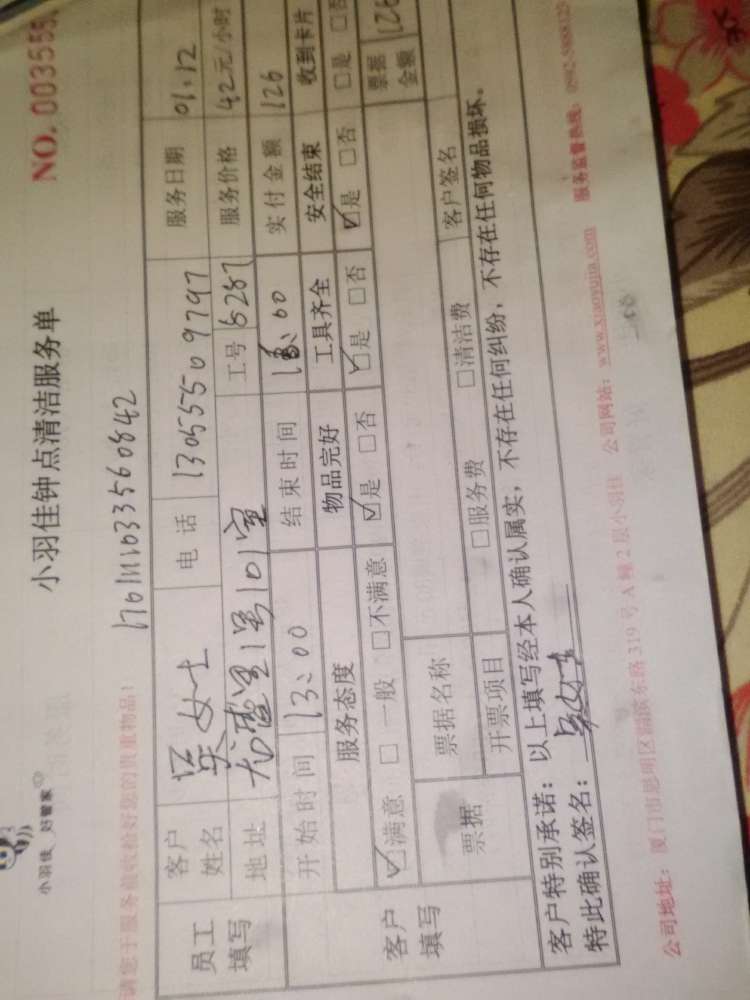 小羽佳 好管家
小羽佳钟点清洁服务单
NO. 003555
请您于服务前收拾好您的贵重物品！
员工填写
客户姓名 吴女士 电话 13055509797 服务日期 01.12
地址 1号101室 工号 6287 服务价格 42元/小时
客户填写
开始时间 13:00 结束时间 :00 实付金额 126
服务态度 物品完好 工具齐全 安全结束 收到卡片
☑满意 □一般 □不满意 ☑是 □否 ☑是 □否 ☑是 □否 □是 □否
票据 票据名称 票据金额 126
开票项目 □服务费 □清洁费 客户签名
客户特别承诺：以上填写经本人确认属实，不存在任何纠纷，不存在任何物品损坏。
特此确认签名：吴女士
公司地址：厦门市思明区湖滨东路319号A幢2层小羽佳 公司网站：www.xiaoyujia.com 服务监督热线：